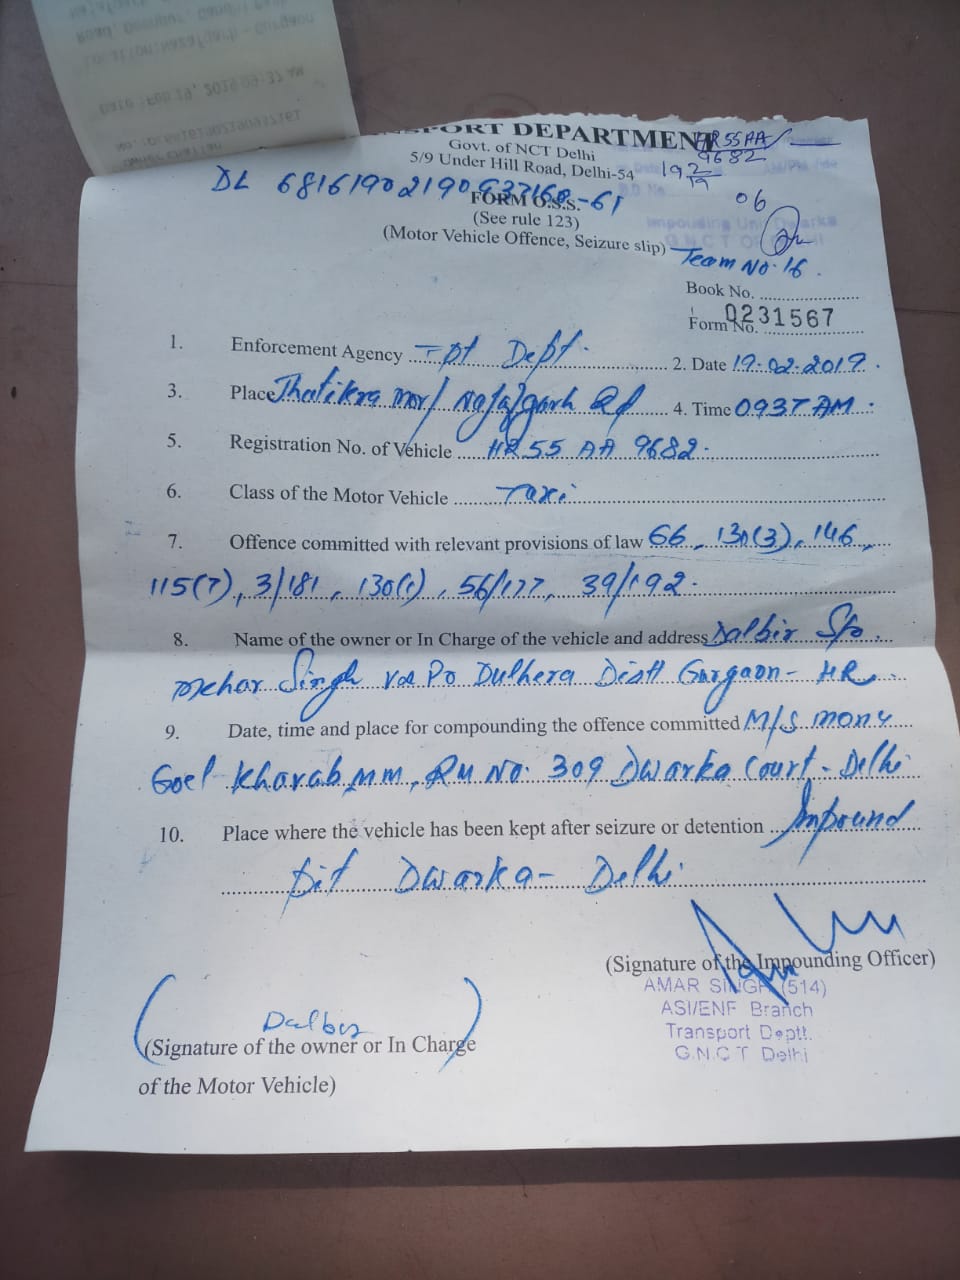 Date : Feb 19, 2019 09:37 AM
TRANSPORT DEPARTMENT
HR 55 AA
9682
Govt. of NCT Delhi
5/9 Under Hill Road, Delhi-54
19/2/19
DL 68161902190937168-61
06
FORM O.S.S.
(See rule 123)
Impouding Unit Dwarka
(Motor Vehicle Offence, Seizure slip)
Team No. 16.
Book No. ..........
Form No. 0231567
1. Enforcement Agency Tpt Deptt. 2. Date 19.02.2019.
3. Place Jhatikra mor/ Najafgarh Rd 4. Time 0937 AM.
5. Registration No. of Vehicle HR 55 AA 9682.
6. Class of the Motor Vehicle Taxi
7. Offence committed with relevant provisions of law 66, 130(3), 146,
115(7), 3/181, 130(1), 56/177, 39/192.
8. Name of the owner or In Charge of the vehicle and address Dalbir S/o
Mehar Singh V&PO Dulhera Distt Gurgaon - HR
9. Date, time and place for compounding the offence committed M/S Mony
Goel Kharab MM, RM No. 309 Dwarka Court - Delhi
10. Place where the vehicle has been kept after seizure or detention Impound
Pit Dwarka - Delhi
(Signature of the Impounding Officer)
AMAR SINGH (514)
ASI/ENF Branch
Transport Deptt.
G.N.C T Delhi
Dalbir
(Signature of the owner or In Charge
of the Motor Vehicle)